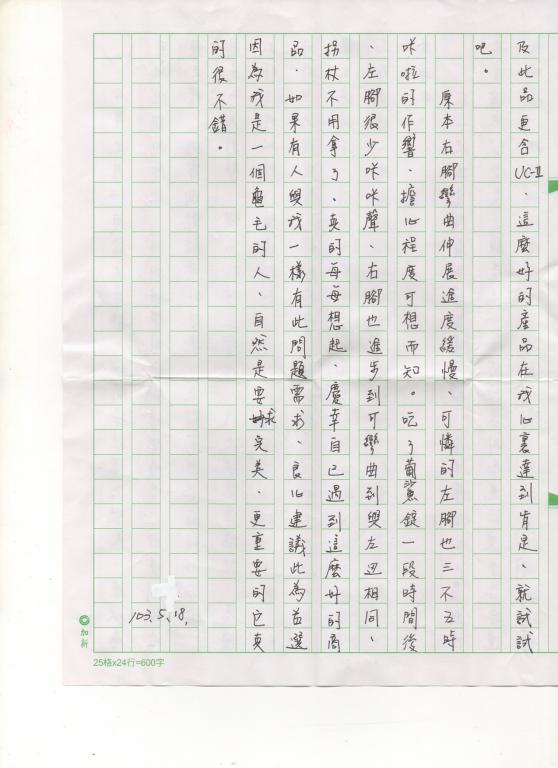 及此品更含UC-II、這麼好的產品在我心裏達到肯定、就試試
吧。
原本右腳彎曲伸展進度緩慢、可憐的左腳也三不五時
咔啦的作響、擔心程度可想而知。吃了葡鯊錠一段時間後
、左腳很少咔咔聲、右腳也進步到可彎曲到與左迎相同、
拐杖不用拿了、真的每每想起、慶幸自己遇到這麼好的商
品．如果有人與我一樣有此問題需求、良心建議此為首選
因為我是一個龜毛的人、自然是要求完美．更重要的它真
的很不錯。
103.5.18.
加新
25格x24行=600字